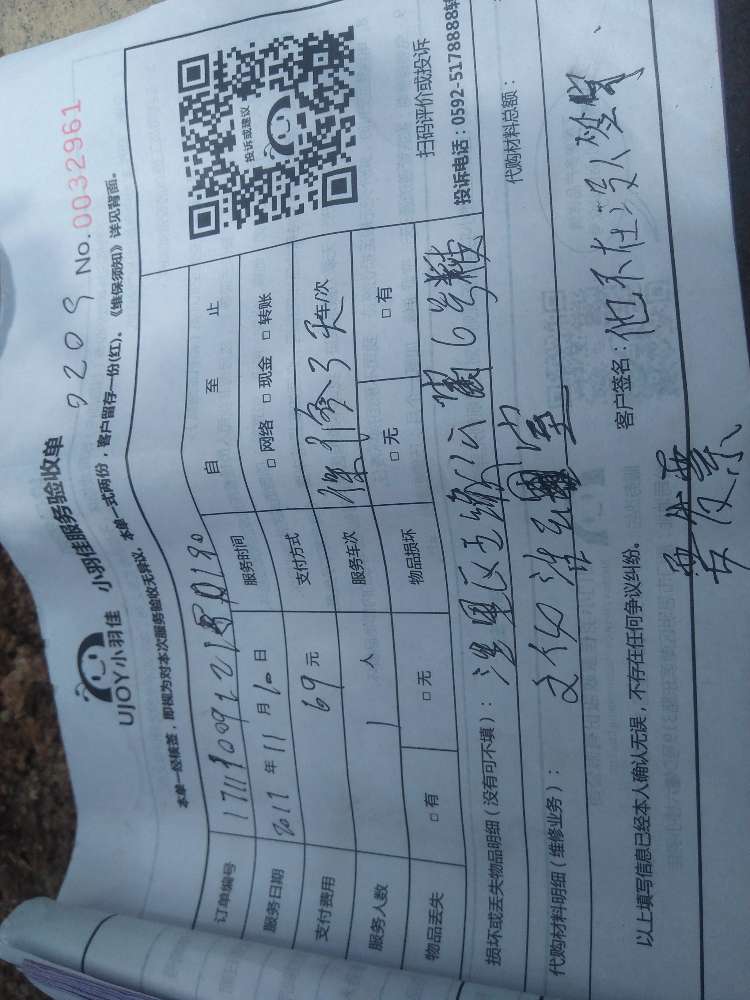 UJOY小羽佳 小羽佳服务验收单
9209 No.0032961
本单一经核签，即视为对本次服务验收无异议。本单一式两份，客户留存一份(红)。《维保须知》详见背面。
订单编号
服务日期 2017 年 11 月 10 日 服务时间 自 至 止
支付费用 69 元 支付方式 □ 网络 □ 现金 □ 转账
服务人数 1 人 服务车次 保修3天 车/次
物品丢失 □ 有 □ 无 物品损坏 □ 无 □ 有
投诉或建议
扫码评价或投诉
投诉电话：0592-5178888转
损坏或丢失物品明细（没有可不填）：
代购材料明细（维修业务）： 代购材料总额：
以上填写信息已经本人确认无误，不存在任何争议纠纷。 客户签名：他不在没人签字
要发票